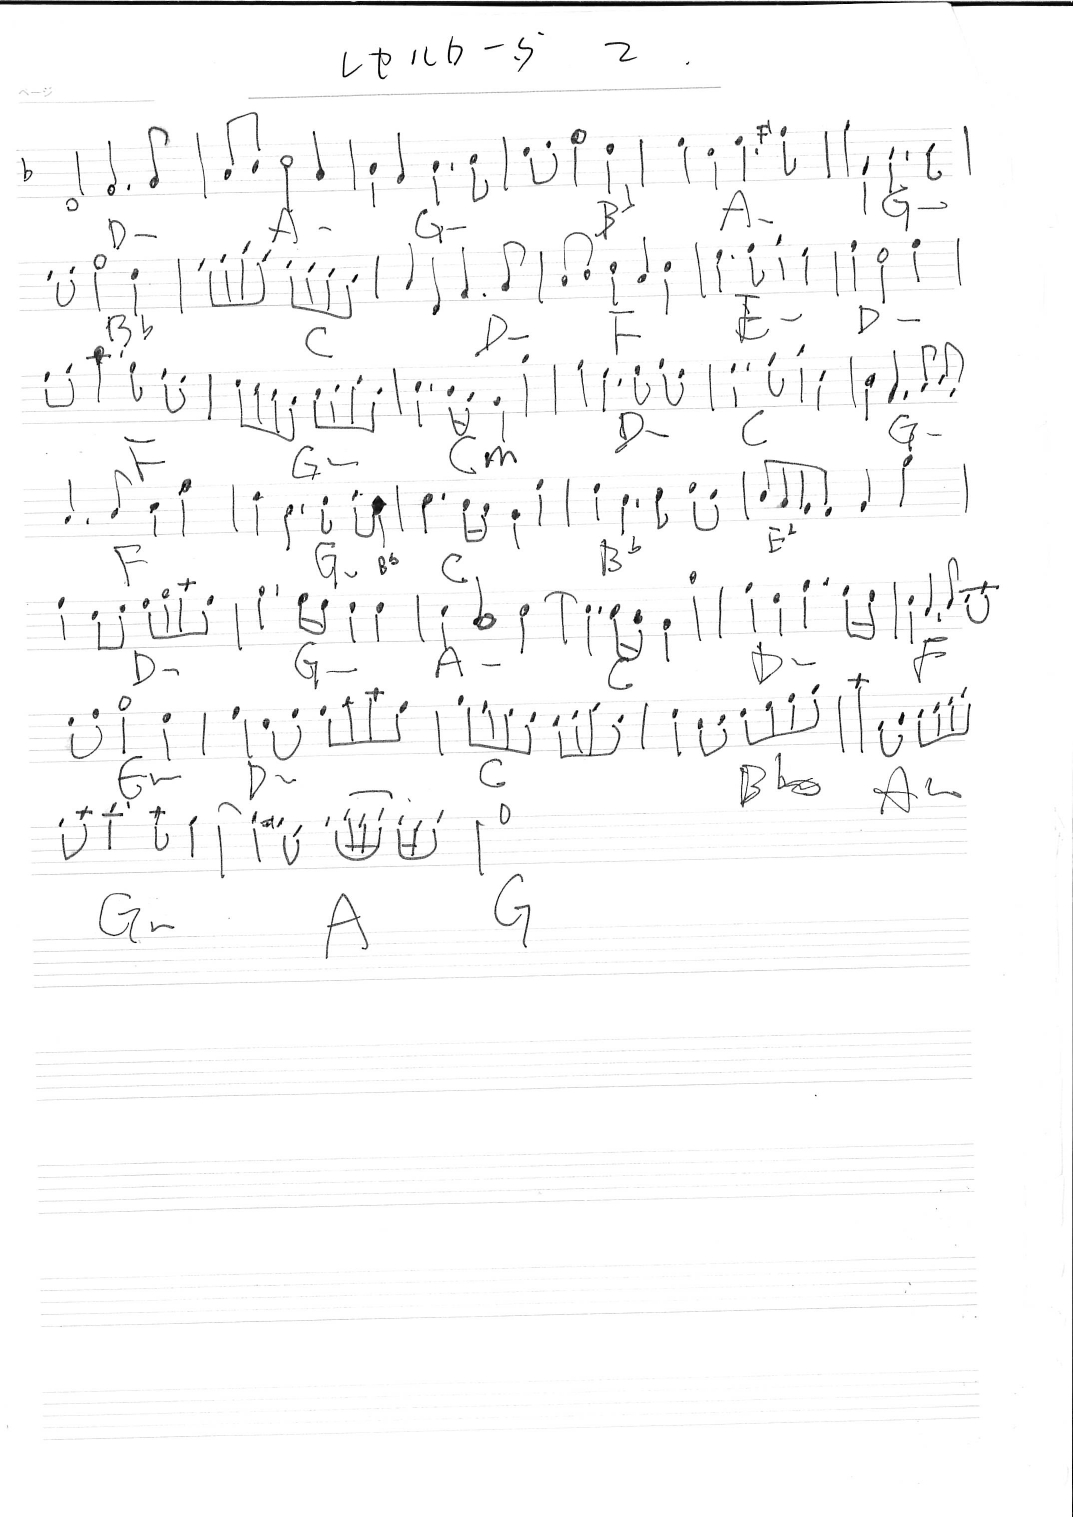 レセルカーダ 2.
ページ
b D- A- G- Bb A- G-
Bb C D- F E- D-
F G- Cm D- C G-
F G- Bb C Bb Eb
D- G- A- C D- F
E- D- C Bb A-
G- A G